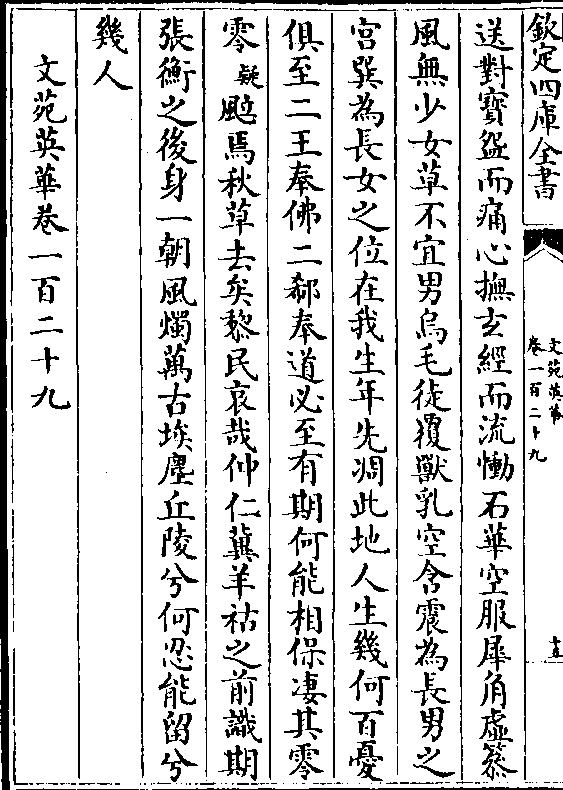 欽定四庫全書
文苑英華
卷一百二十九
十五
送對寶盌而痛心撫玄經而流慟石華空服犀角虛篸
風無少女草不宜男烏毛徒覆獸乳空含震為長男之
宮巽為長女之位在我生年先凋此地人生幾何百憂
俱至二王奉佛二郗奉道必至有期何能相保凄其零
零疑颷焉秋草去矣黎民哀哉仲仁冀羊祜之前識期
張衡之後身一朝風燭萬古埃塵丘陵兮何忍能留兮
幾人
文苑英華卷一百二十九